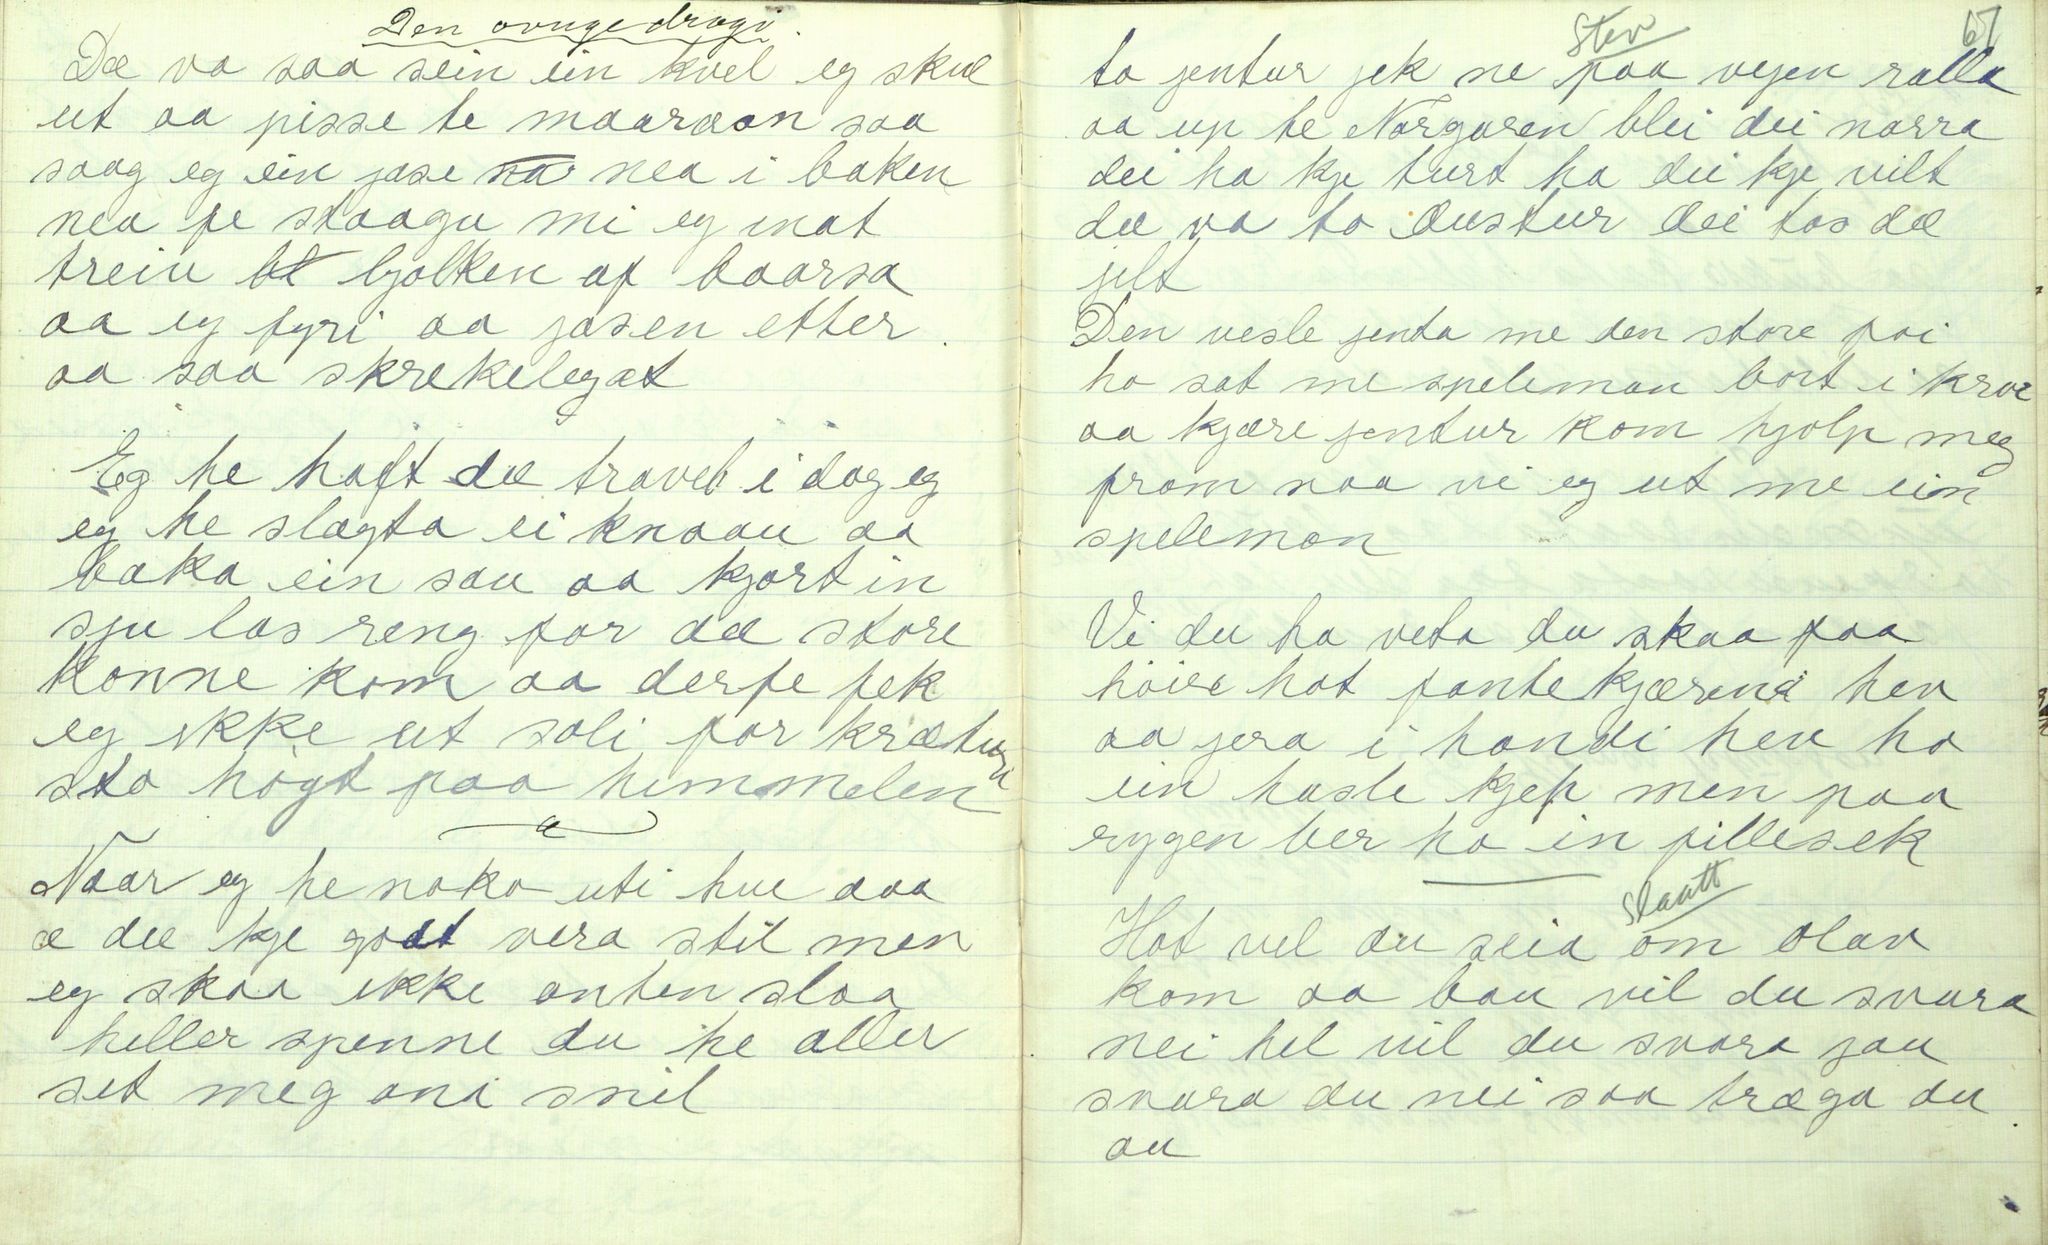 Den avuge dragi.
Dæ va saa sein ein kvel eg skul
ut aa pisse te maaraan saa
saag eg ein jase na nea i baken
nea fe staagu mi eg inat
trein bt bjolken af baarsa
aa eg fyri aa jasen etter
aa saa skrekelegat
Eg he haft dæ travelt i dag eg
eg he slagta ei knaau aa
baka ein sau aa kjørt in
sju las reng før dæ store
konne kom aa derfe fek
eg ikke ut soli før kræturi
sto høgt paa himmelen
Naar eg he noko uti hue daa
æ dæ kje godt vera stil men
eg skaa ikke anten slaa
heller spenne du he aller
set meg ana snil
67
Stev
to jentur jek ne paa vejen ralla
aa up te Nørgaren blei dei narra
dei ha kje turt ha dei kje vilt
dæ va to dustur dei tos dæ
jilt
Den vesle jenta me den store føi
ho sat me spelemon bort i kroe
aa kjære jentur kom hjolp meg
fram naa vi eg ut me ein
spelemon
Vi du ha veta du skaa faa
høire hot fantekjæren&aring; hev
aa jera i handi hev ho
ein hasle kjep men paa
rygen ber ho in fillesek
Slaatt
Hot vel du seia om Olav
kom aa bau vil du svara
nei hel vil du svara jau
svara du nei saa træga du
au